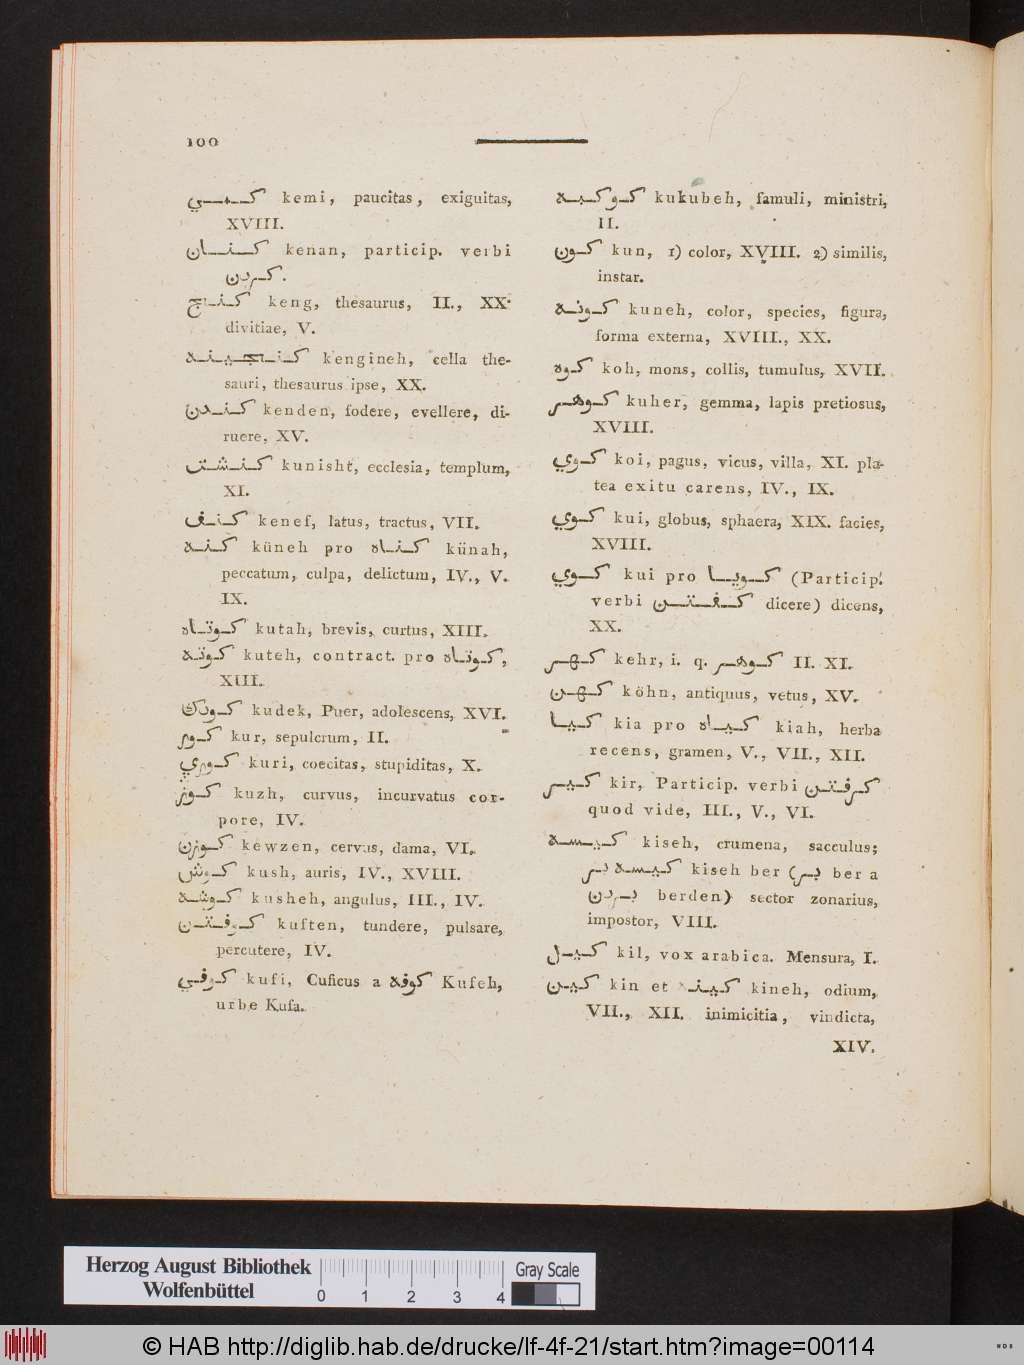 100
كمي kemi, paucitas, exiguitas,
XVIII.
كنان kenan, particip. verbi
كردن.
كنج keng, thesaurus, II., XX.
divitiae, V.
كنجينه kengineh, cella the-
sauri, thesaurus ipse, XX.
كندن kenden, fodere, evellere, di-
ruere, XV.
كنشت kunisht, ecclesia, templum,
XI.
كنف kenef, latus, tractus, VII.
كنه küneh pro كناه künah,
peccatum, culpa, delictum, IV., V.
IX.
كوتاه kutah, brevis, curtus, XIII.
كوته kuteh, contract. pro كوتاه,
XIII.
كودك kudek, Puer, adolescens, XVI.
كور kur, sepulcrum, II.
كوري kuri, coecitas, stupiditas, X.
كوژ kuzh, curvus, incurvatus cor-
pore, IV.
كوزن kewzen, cervus, dama, VI.
كوش kush, auris, IV., XVIII.
كوشه kusheh, angulus, III., IV.
كوفتن kuften, tundere, pulsare,
percutere, IV.
كوفي kufi, Cuficus a كوفه Kufeh,
urbe Kufa.
كوكبه kukubeh, famuli, ministri,
II.
كون kun, 1) color, XVIII. 2) similis,
instar.
كونه kuneh, color, species, figura,
forma externa, XVIII., XX.
كوه koh, mons, collis, tumulus, XVII.
كوهر kuher, gemma, lapis pretiosus,
XVIII.
كوي koi, pagus, vicus, villa, XI. pla-
tea exitu carens, IV., IX.
كوي kui, globus, sphaera, XIX. facies,
XVIII.
كوي kui pro كويا (Particip.
verbi كفتن dicere) dicens,
XX.
كهر kehr, i. q. كوهر II. XI.
كهن köhn, antiquus, vetus, XV.
كيا kia pro كياه kiah, herba
recens, gramen, V., VII., XII.
كير kir, Particip. verbi كرفتن
quod vide, III., V., VI.
كيسه kiseh, crumena, sacculus;
كيسه بر kiseh ber (بر ber a
بردن berden) sector zonarius,
impostor, VIII.
كيل kil, vox arabica. Mensura, I.
كين kin et كينه kineh, odium,
VII., XII. inimicitia, vindicta,
XIV.
Herzog August Bibliothek
Wolfenbüttel
0 1 2 3 4
Gray Scale
© HAB http://diglib.hab.de/drucke/lf-4f-21/start.htm?image=00114